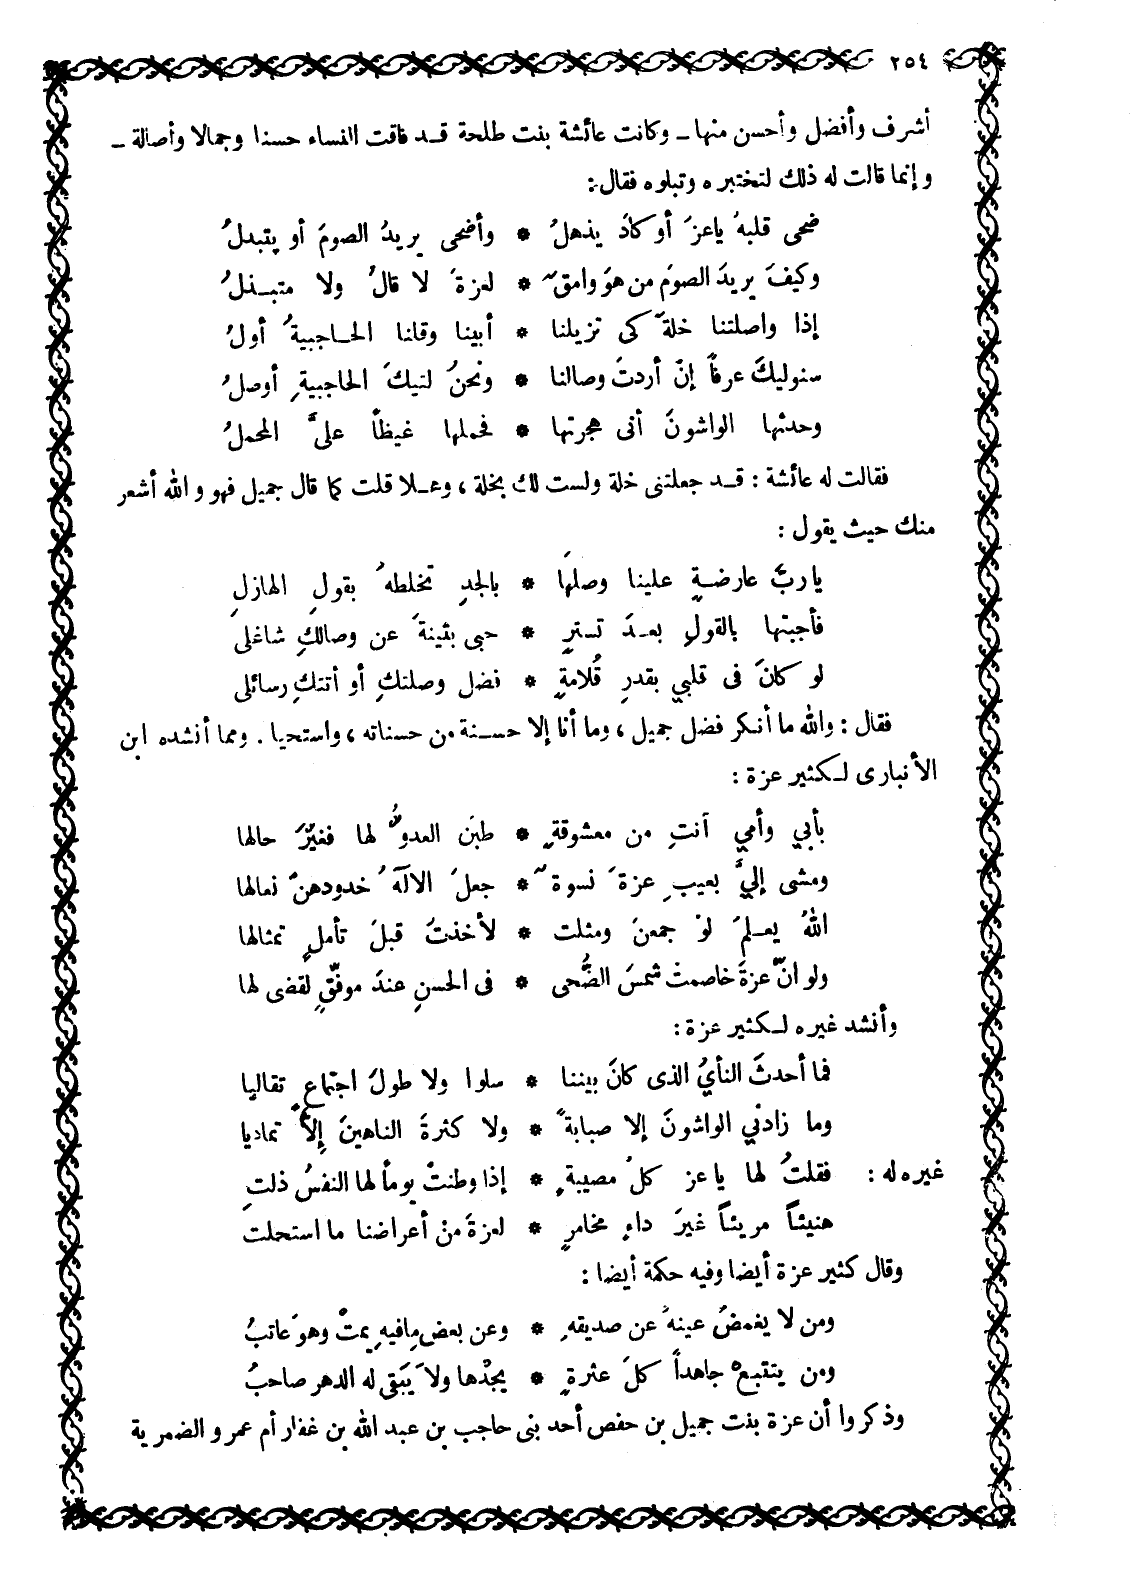 ٢٥٤
أشرف وأفضل وأحسن منها ـ وكانت عائشة بنت طلحة قد فاقت النساء حسنا وجمالا وأصالة ـ
وإنما قالت له ذلك لتختبره وتبلوه فقال:
ضحى قلبهُ ياعزَ أو كادَ يذهلُ * وأضحى يريدُ الصومَ أو يتبدلُ
وكيفَ يريدَ الصومَ من هوَ وامقٌ * لعزةَ لا قالُ ولا متبــذلُ
إذا واصلتنا خلةٌ كى تزيلنا * أبينا وقلنا الحــاجبيةُ أولُ
سنوليكَ عرفاً إنْ أردتَ وصالنا * ونحنُ لتيكَ الحاجبيةِ أوصلُ
وحدثها الواشونَ أنى هجرتها * فحملها غيظاً علىَّ المحملُ
فقالت له عائشة : قــد جعلتنى خلة ولست لك بخلة ، وهــلا قلت كما قال جميل فهو والله أشعر
منك حيث يقول :
ياربَّ عارضــةٍ علينا وصلهَا * بالجدِ تخلطهُ بقولِ الهازلِ
فأجبتها بالقولِ بعــدَ تسترٍ * حبى بثينةَ عن وصالكِ شاغلى
لو كانَ فى قلبي بقدرِ قُلامةٍ * فضل وصلتكِ أو أتتكِ رسائلى
فقال : والله ما أنكر فضل جميل ، وما أنا إلا حســنة من حسناته ، واستحيا . ومما أنشده ابن
الأنبارى لـكثير عزة :
بأبي وأمي أنتِ من معشوقةٍ * طبَن العدوُّ لها فغيَّرَ حالها
ومشى إليَّ بعيبِ عزةَ نسوةٌ * جعلَ الآلهُ خدودهنَّ نعالها
اللهُ يعــلمَ لوْ جمعنَ ومثلت * لأخذتُ قبلَ تأملٍ تمثالها
ولو انَّ عزةَ خاصمتْ شمسَ الضُّحى * فى الحسنِ عندَ موفّقٍ لقضى لها
وأنشد غيره لـكثير عزة :
فما أحدثَ النأيُ الذى كانَ بيننا * سلوا ولا طولَ اجتماعٍ تقاليا
وما زادني الواشونَ إلا صبابةً * ولا كثرةَ الناهينَ إلاَّ تماديا
غيره له : فقلتُ لها ياعز كلُ مصيبةٍ * إذا وطنتْ يوماً لها النفسُ ذلتِ
هنيئاً مريئاً غيرَ داءٍ مخامرٍ * لعزةَ منْ أعراضنا ما استحلت
وقال كثير عزة أيضا وفيه حكمة أيضا :
ومن لا يغمضُ عينهُ عن صديقهِ * وعن بعضِ مافيهِ يمتْ وهوَ عاتبُ
ومن يتتبعْ جاهداً كلَ عثرةٍ * يجدْها ولاَ يَبقى له الدهر صاحبُ
وذكروا أن عزة بنت جميل بن حفص أحد بنى حاجب بن عبد الله بن غفار أم عمرو الضمرية